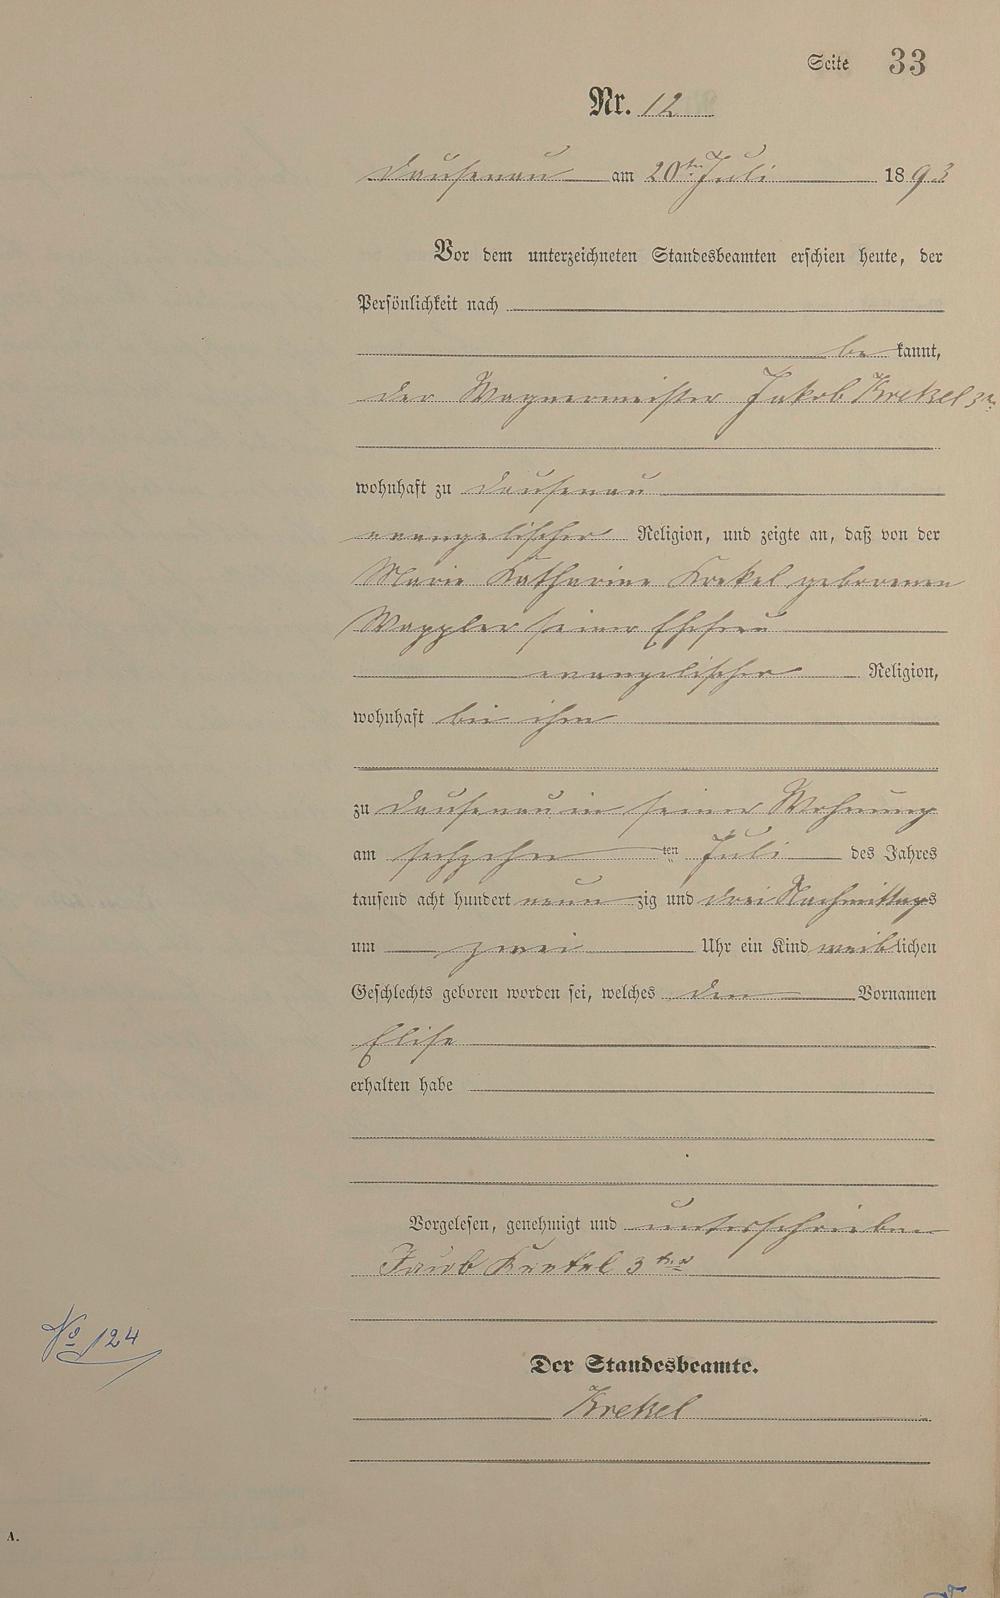 Seite 33
Nr. 12
Dausenau am 20ten Juli 1893
Vor dem unterzeichneten Standesbeamten erschien heute, der
Persönlichkeit nach
be kannt,
der Wagnermeister Jakob Krekel 3r.
wohnhaft zu Dausenau
evangelischer Religion, und zeigte an, daß von der
Marie Katharine Krekel geborenen
Wappler seiner Ehefrau
evangelischer Religion,
wohnhaft bei ihm
zu Dausenau in seiner Wohnung
am sechzehn ten Juli des Jahres
tausend acht hundert neun zig und drei Nachmittags
um zwei Uhr ein Kind weiblichen
Geschlechts geboren worden sei, welches den Vornamen
Elise
erhalten habe
Vorgelesen, genehmigt und unterschrieben
Jacob Krekel 3ter
Der Standesbeamte.
Krekel
No 124
A.